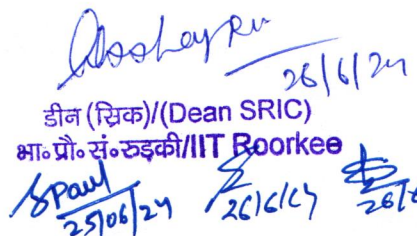 26/6/24
डीन (स्रिक)/(Dean SRIC)
भा॰प्रौ॰सं॰रुड़की/IIT Roorkee
SPaul
25/06/24 26/6/24 26/6